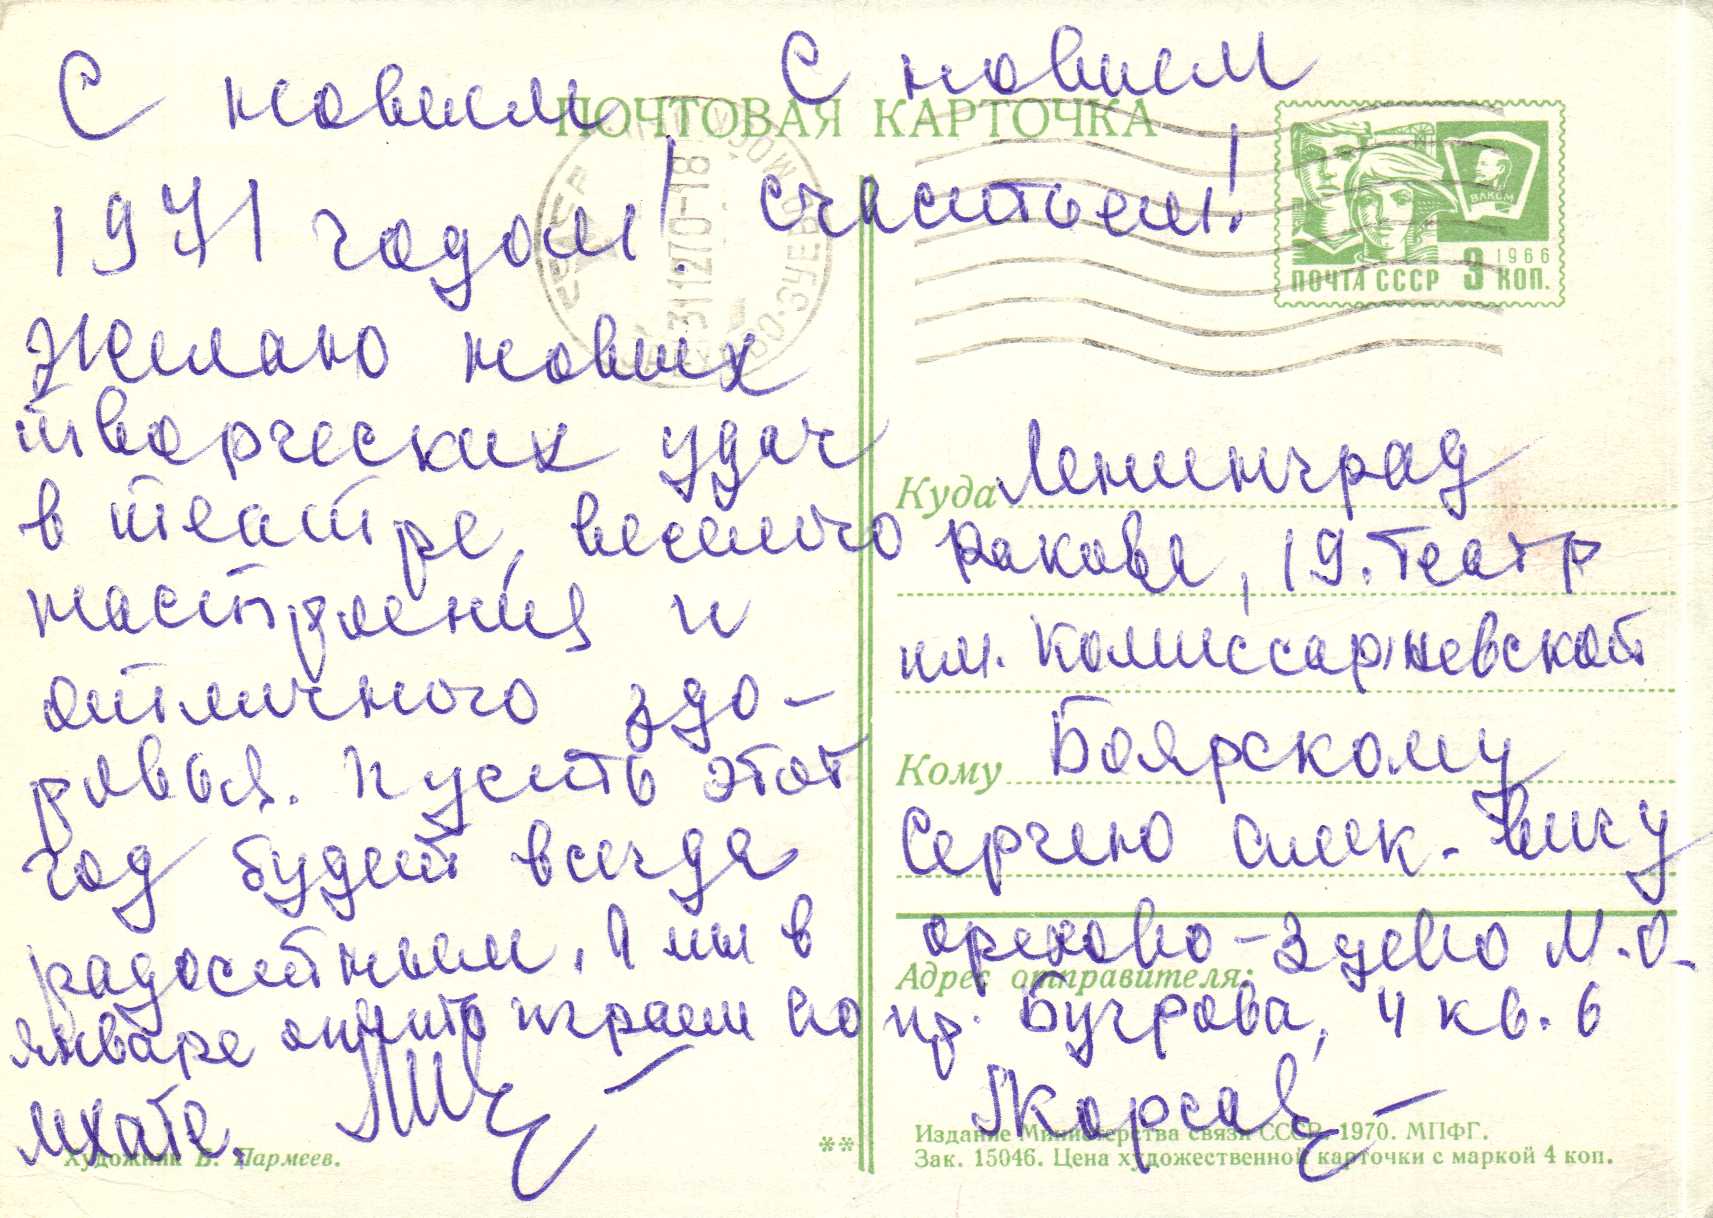 С новым
1971 годом!
С новым
счастьем!
Желаю новых
творческих удач
в театре, веселого
настроения и
отличного здо-
ровья. Пусть этот
год будет всегда
радостным, а мы в
январе опять играем во
МХАТе.
ПОЧТОВАЯ КАРТОЧКА
СССР
311270-18
ОРЕХОВО-ЗУЕВО
ВЛКСМ
1966
ПОЧТА СССР 3 КОП.
Куда Ленинград
Ракова, 19. Театр
им. Комиссаржевской
Кому Боярскому
Сергею Алек-вичу
Орехово-Зуево М.О.
Адрес отправителя:
пр. Бугрова, 4 кв. 6
Издание Министерства связи СССР. 1970. МПФГ.
Зак. 15046. Цена художественной карточки с маркой 4 коп.
Художник В. Пармеев.
**